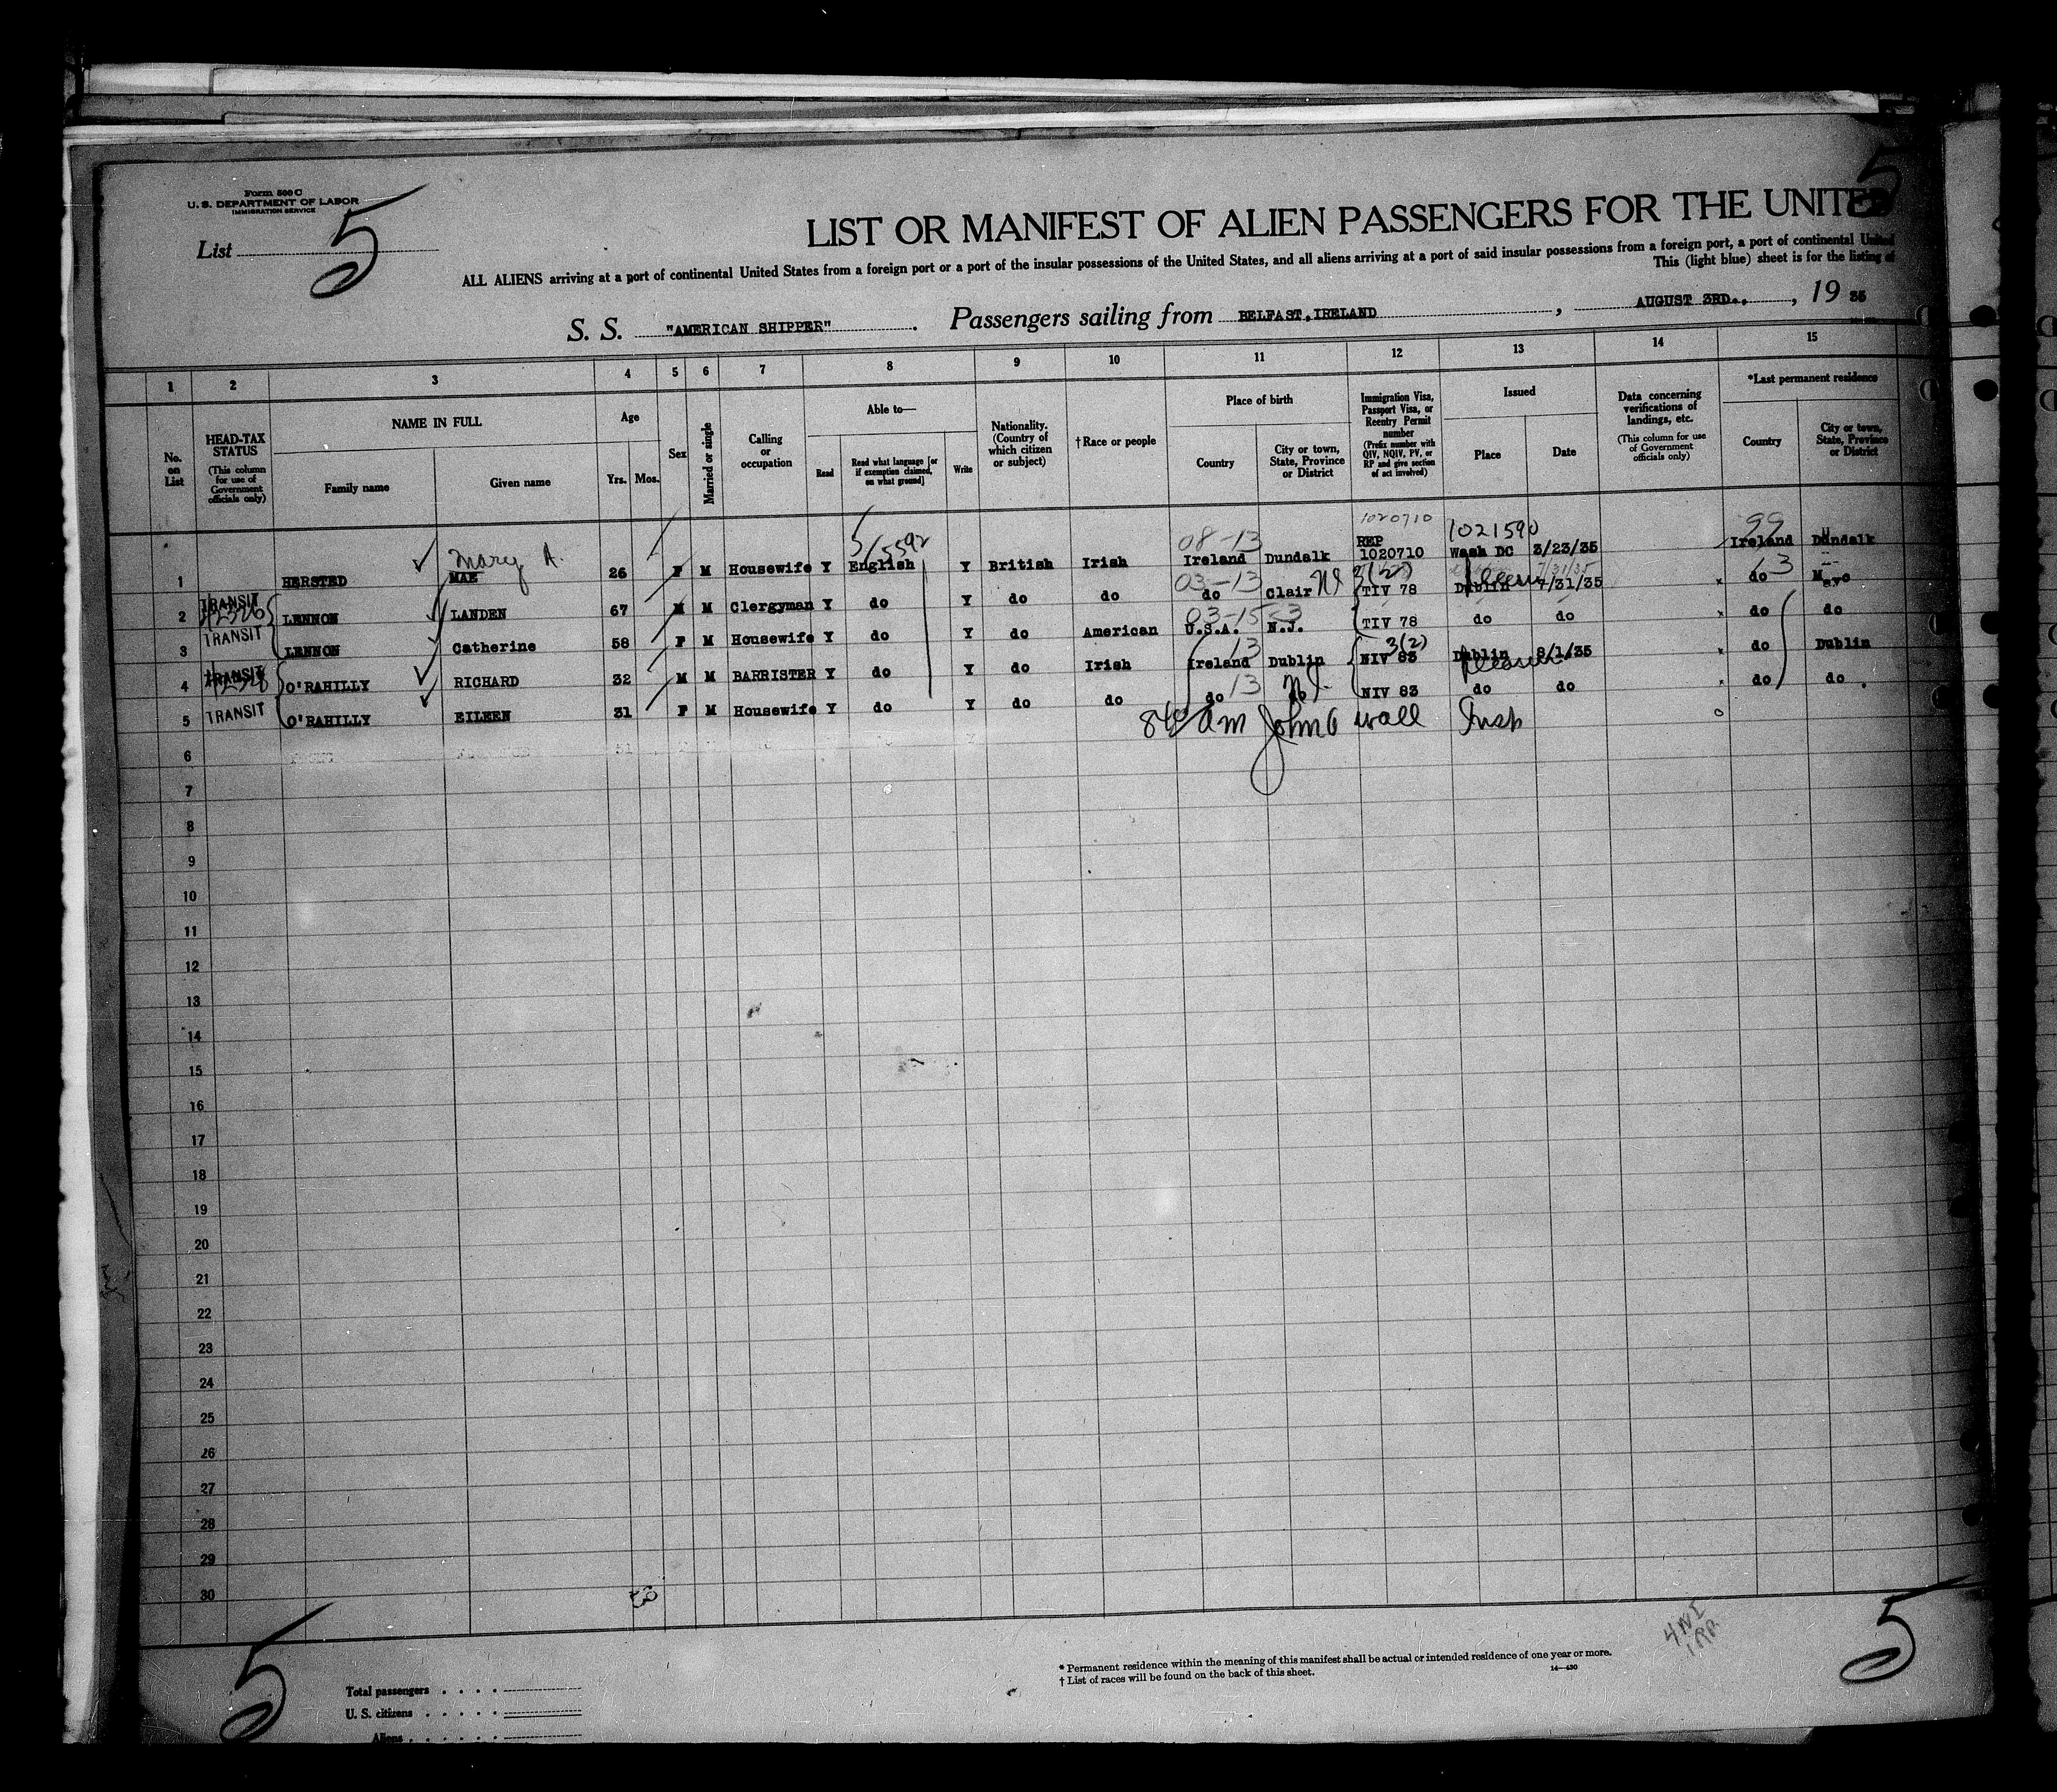 5
Form 500 C
U. S. DEPARTMENT OF LABOR
IMMIGRATION SERVICE
List 5
LIST OR MANIFEST OF ALIEN PASSENGERS FOR THE UNITED
ALL ALIENS arriving at a port of continental United States from a foreign port or a port of the insular possessions of the United States, and all aliens arriving at a port of said insular possessions from a foreign port, a port of continental United
This (light blue) sheet is for the listing of
S. S. "AMERICAN SHIPPER". Passengers sailing from BELFAST, IRELAND, AUGUST 3RD., 19 35
1 2 3 4 5 6 7 8 9 10 11 12 13 14 15
No. on List
HEAD-TAX STATUS (This column for use of Government officials only)
NAME IN FULL
Family name
Given name
Age
Yrs. Mos.
Sex
Married or single
Calling or occupation
Able to—
Read
Read what language [or if exemption claimed, on what ground]
Write
Nationality. (Country of which citizen or subject)
†Race or people
Place of birth
Country
City or town, State, Province or District
Immigration Visa, Passport Visa, or Reentry Permit number (Prefix number with QIV, NQIV, PV, or RP and give section of act involved)
Issued
Place
Date
Data concerning verifications of landings, etc. (This column for use of Government officials only)
*Last permanent residence
Country
City or town, State, Province or District
1020710 1021590
Mary A. 08-13 REP 99
1 HERSTED MAE 26 F M Housewife Y English Y British Irish Ireland Dundalk 1020710 Wash DC 3/23/35 Ireland Dundalk
TRANSIT 03-13 3(2) 63
2 LENNON LANDEN 67 M M Clergyman Y do Y do do do Clair TIV 78 Dublin 7/31/35 do Mayo
TRANSIT 03-15-3
3 LENNON Catherine 58 F M Housewife Y do Y do American U.S.A. N.J. TIV 78 do do do do
TRANSIT 13 3(2)
4 O'RAHILLY RICHARD 32 M M BARRISTER Y do Y do Irish Ireland Dublin NIV 83 Dublin 8/1/35 do Dublin
TRANSIT 13
5 O'RAHILLY EILEEN 31 F M Housewife Y do Y do do do do NIV 83 do do do do
840 am John G wall Insp
6
7
8
9
10
11
12
13
14
15
16
17
18
19
20
21
22
23
24
25
26
27
28
29
30
4 NI
1 RP
5
5
* Permanent residence within the meaning of this manifest shall be actual or intended residence of one year or more.
† List of races will be found on the back of this sheet.
14—430
Total passengers
U. S. citizens
Aliens